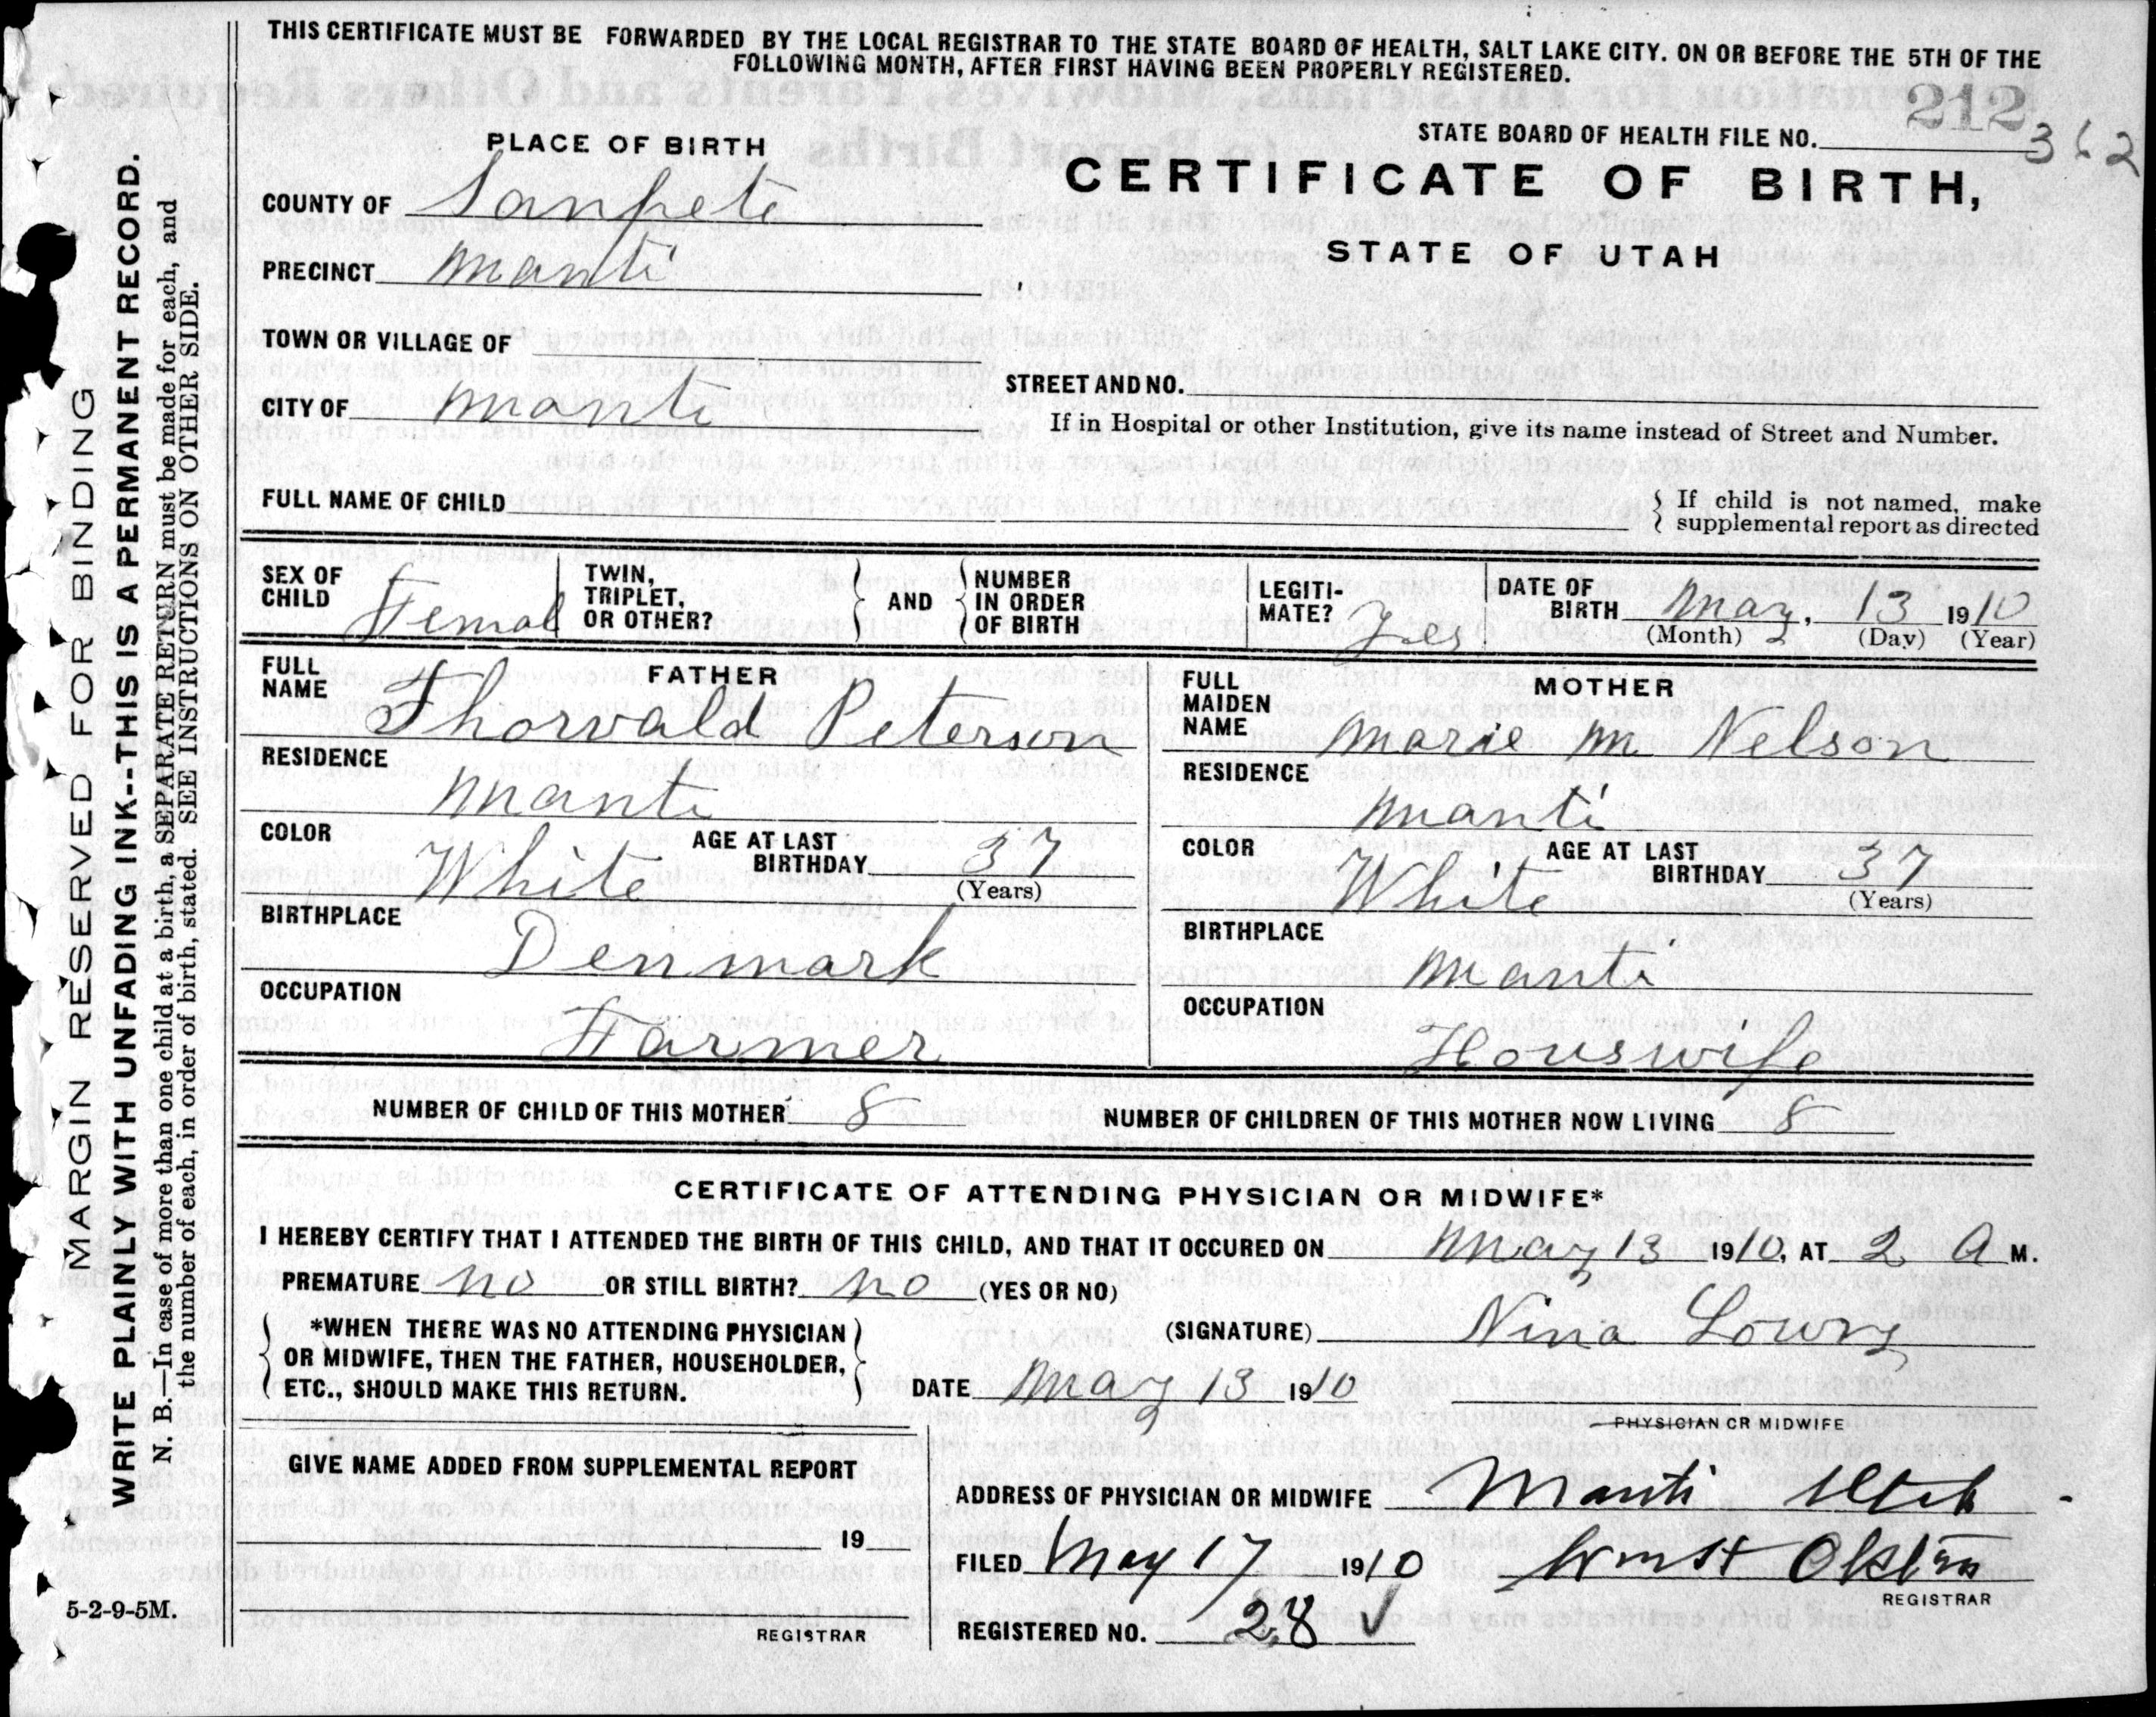 THIS CERTIFICATE MUST BE FORWARDED BY THE LOCAL REGISTRAR TO THE STATE BOARD OF HEALTH, SALT LAKE CITY. ON OR BEFORE THE 5TH OF THE
FOLLOWING MONTH, AFTER FIRST HAVING BEEN PROPERLY REGISTERED.
212
STATE BOARD OF HEALTH FILE NO. 362
PLACE OF BIRTH
CERTIFICATE OF BIRTH,
STATE OF UTAH
COUNTY OF Sanpete
PRECINCT Manti
TOWN OR VILLAGE OF
CITY OF Manti
STREET AND NO.
If in Hospital or other Institution, give its name instead of Street and Number.
FULL NAME OF CHILD
If child is not named, make
supplemental report as directed
SEX OF CHILD Femal
TWIN, TRIPLET, OR OTHER?
AND
NUMBER IN ORDER OF BIRTH
LEGITI-MATE? Yes
DATE OF BIRTH May, 13 1910
(Month) (Day) (Year)
FATHER
FULL NAME Thorvald Peterson
RESIDENCE
Manti
COLOR White AGE AT LAST BIRTHDAY 37
(Years)
BIRTHPLACE
Denmark
OCCUPATION
Farmer
MOTHER
FULL MAIDEN NAME Marie M Nelson
RESIDENCE
Manti
COLOR White AGE AT LAST BIRTHDAY 37
(Years)
BIRTHPLACE
Manti
OCCUPATION
Houswife
NUMBER OF CHILD OF THIS MOTHER 8 NUMBER OF CHILDREN OF THIS MOTHER NOW LIVING 8
CERTIFICATE OF ATTENDING PHYSICIAN OR MIDWIFE*
I HEREBY CERTIFY THAT I ATTENDED THE BIRTH OF THIS CHILD, AND THAT IT OCCURED ON May 13 1910, AT 2 A M.
PREMATURE no OR STILL BIRTH? no (YES OR NO)
*WHEN THERE WAS NO ATTENDING PHYSICIAN
OR MIDWIFE, THEN THE FATHER, HOUSEHOLDER,
ETC., SHOULD MAKE THIS RETURN.
(SIGNATURE) Nina Lowry
DATE May 13 1910
PHYSICIAN OR MIDWIFE
GIVE NAME ADDED FROM SUPPLEMENTAL REPORT
19
REGISTRAR
ADDRESS OF PHYSICIAN OR MIDWIFE Manti Utah
FILED May 17 1910
REGISTRAR
REGISTERED NO. 28 ✓
5-2-9-5M.
MARGIN RESERVED FOR BINDING
WRITE PLAINLY WITH UNFADING INK--THIS IS A PERMANENT RECORD.
N. B.—In case of more than one child at a birth, a SEPARATE RETURN must be made for each, and
the number of each, in order of birth, stated. SEE INSTRUCTIONS ON OTHER SIDE.